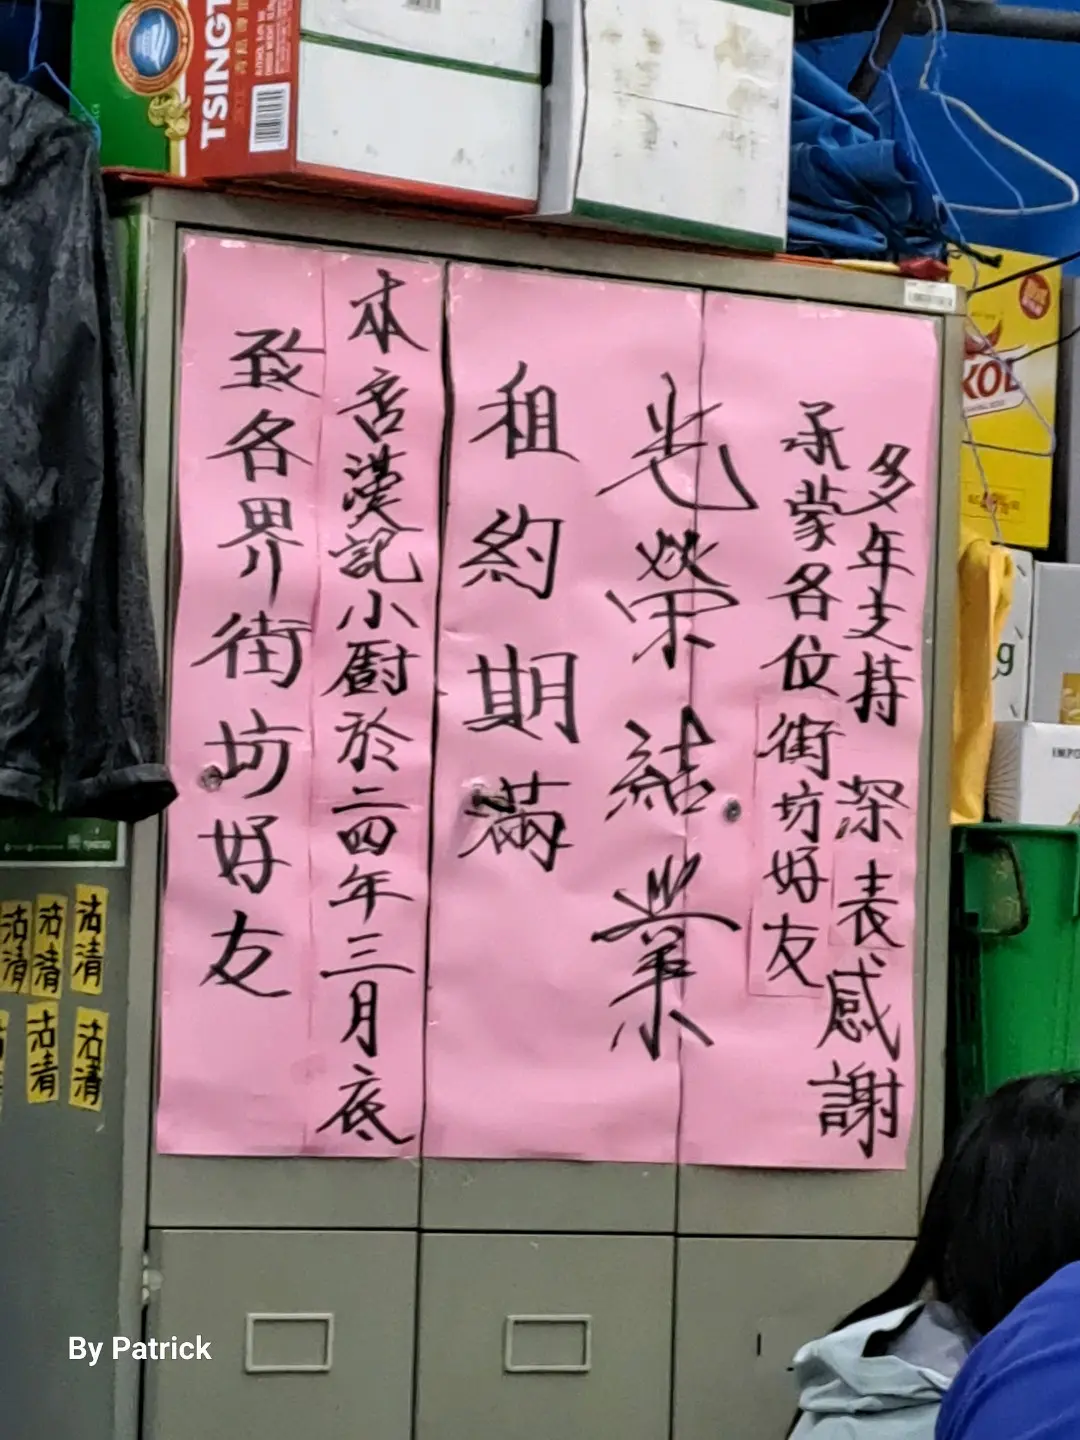 TSINGT
致各界街坊好友
本店漢記小廚於二四年三月底
租約期滿
光榮結業
承蒙各位街坊好友
多年支持 深表感謝
沽清
沽清
沽清
沽清
沽清
KOL
IMPO
By Patrick